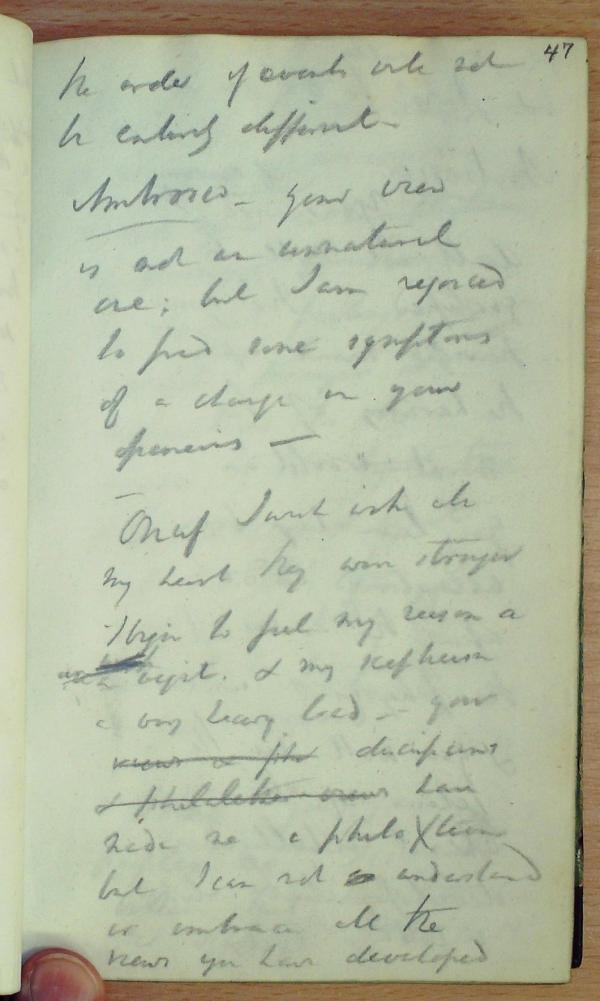 47
the order of events would not
be entirely different
Ambrosio - your view
is not an unnatural
one; but I am rejoiced
to find some symptoms
of a change in your
opinions —
Onuf I wish with all
my heart they were stronger
I begin to feel my reason a
weight. & my scepticism
a very heavy load - your
views & phil discussions
& philalethes views have
made me a Phila
but I can not understand
or embrace all the
views you have developed